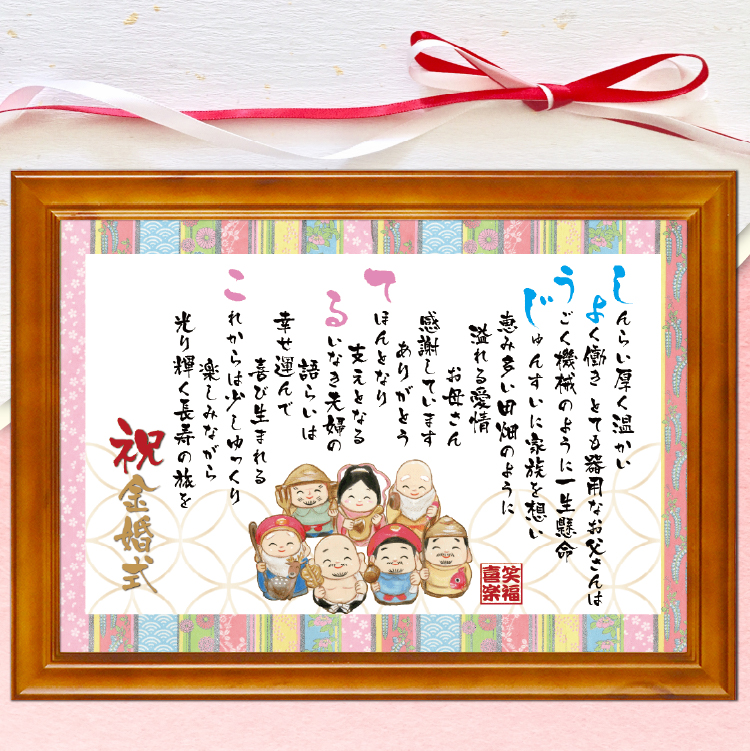 しんらい厚く温かい
よく働き とても器用なお父さんは
うごく機械のように一生懸命
じゅんすいに家族を想い
恵み多い田畑のように
溢れる愛情
お母さん
感謝しています
ありがとう
てほんとなり
支えとなる
るいなき夫婦の
語らいは
幸せ運んで
喜び生まれる
これからは少しゆっくり
楽しみながら
光り輝く長寿の旅を
祝金婚式
笑福
喜楽